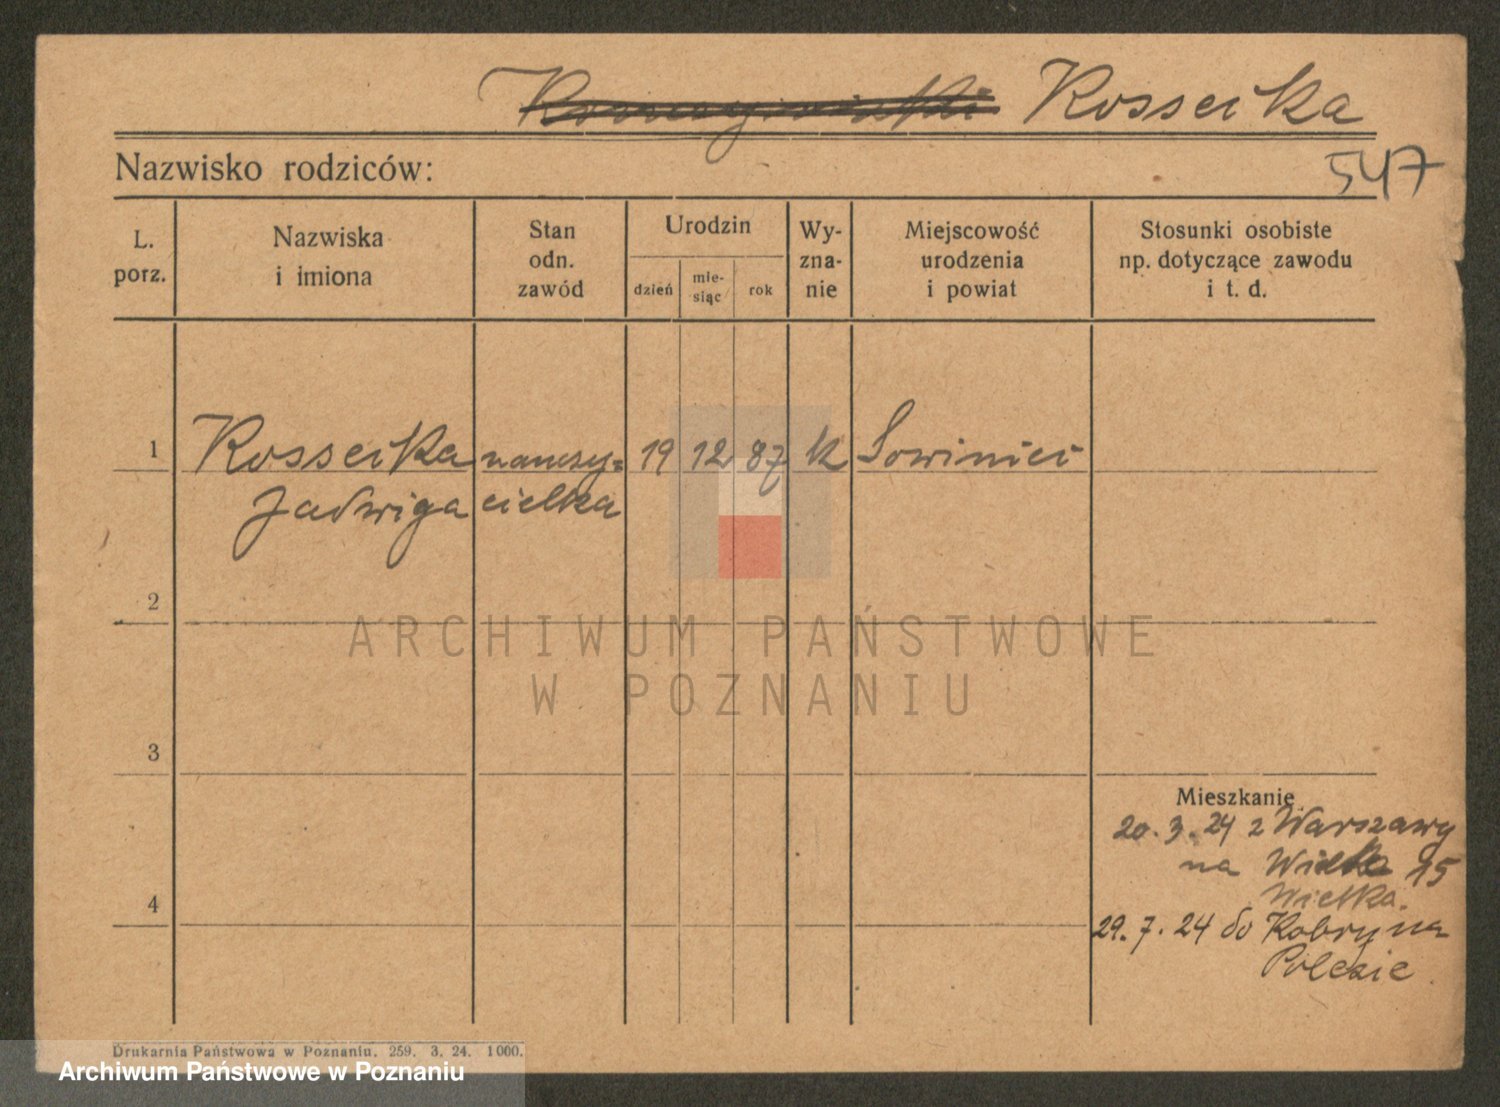 Rosseika
Nazwisko rodziców:
547
L. porz.
Nazwiska i imiona
Stan odn. zawód
Urodzin
dzień
mie-
siąc
rok
Wy-
zna-
nie
Miejscowość
urodzenia
i powiat
Stosunki osobiste
np. dotyczące zawodu
i t. d.
1 Rosseika nauczy= 19 12 87 k Sowinici
Jadwiga cielka
2
ARCHIWUM PAŃSTWOWE
W POZNANIU
3
Mieszkanie
20. 3. 24 z Warszawy
na Wielka 15
Wielka.
4
29. 7. 24 do Kobryna
Polesie
Drukarnia Państwowa w Poznaniu. 259. 3. 24. 1000.
Archiwum Państwowe w Poznaniu